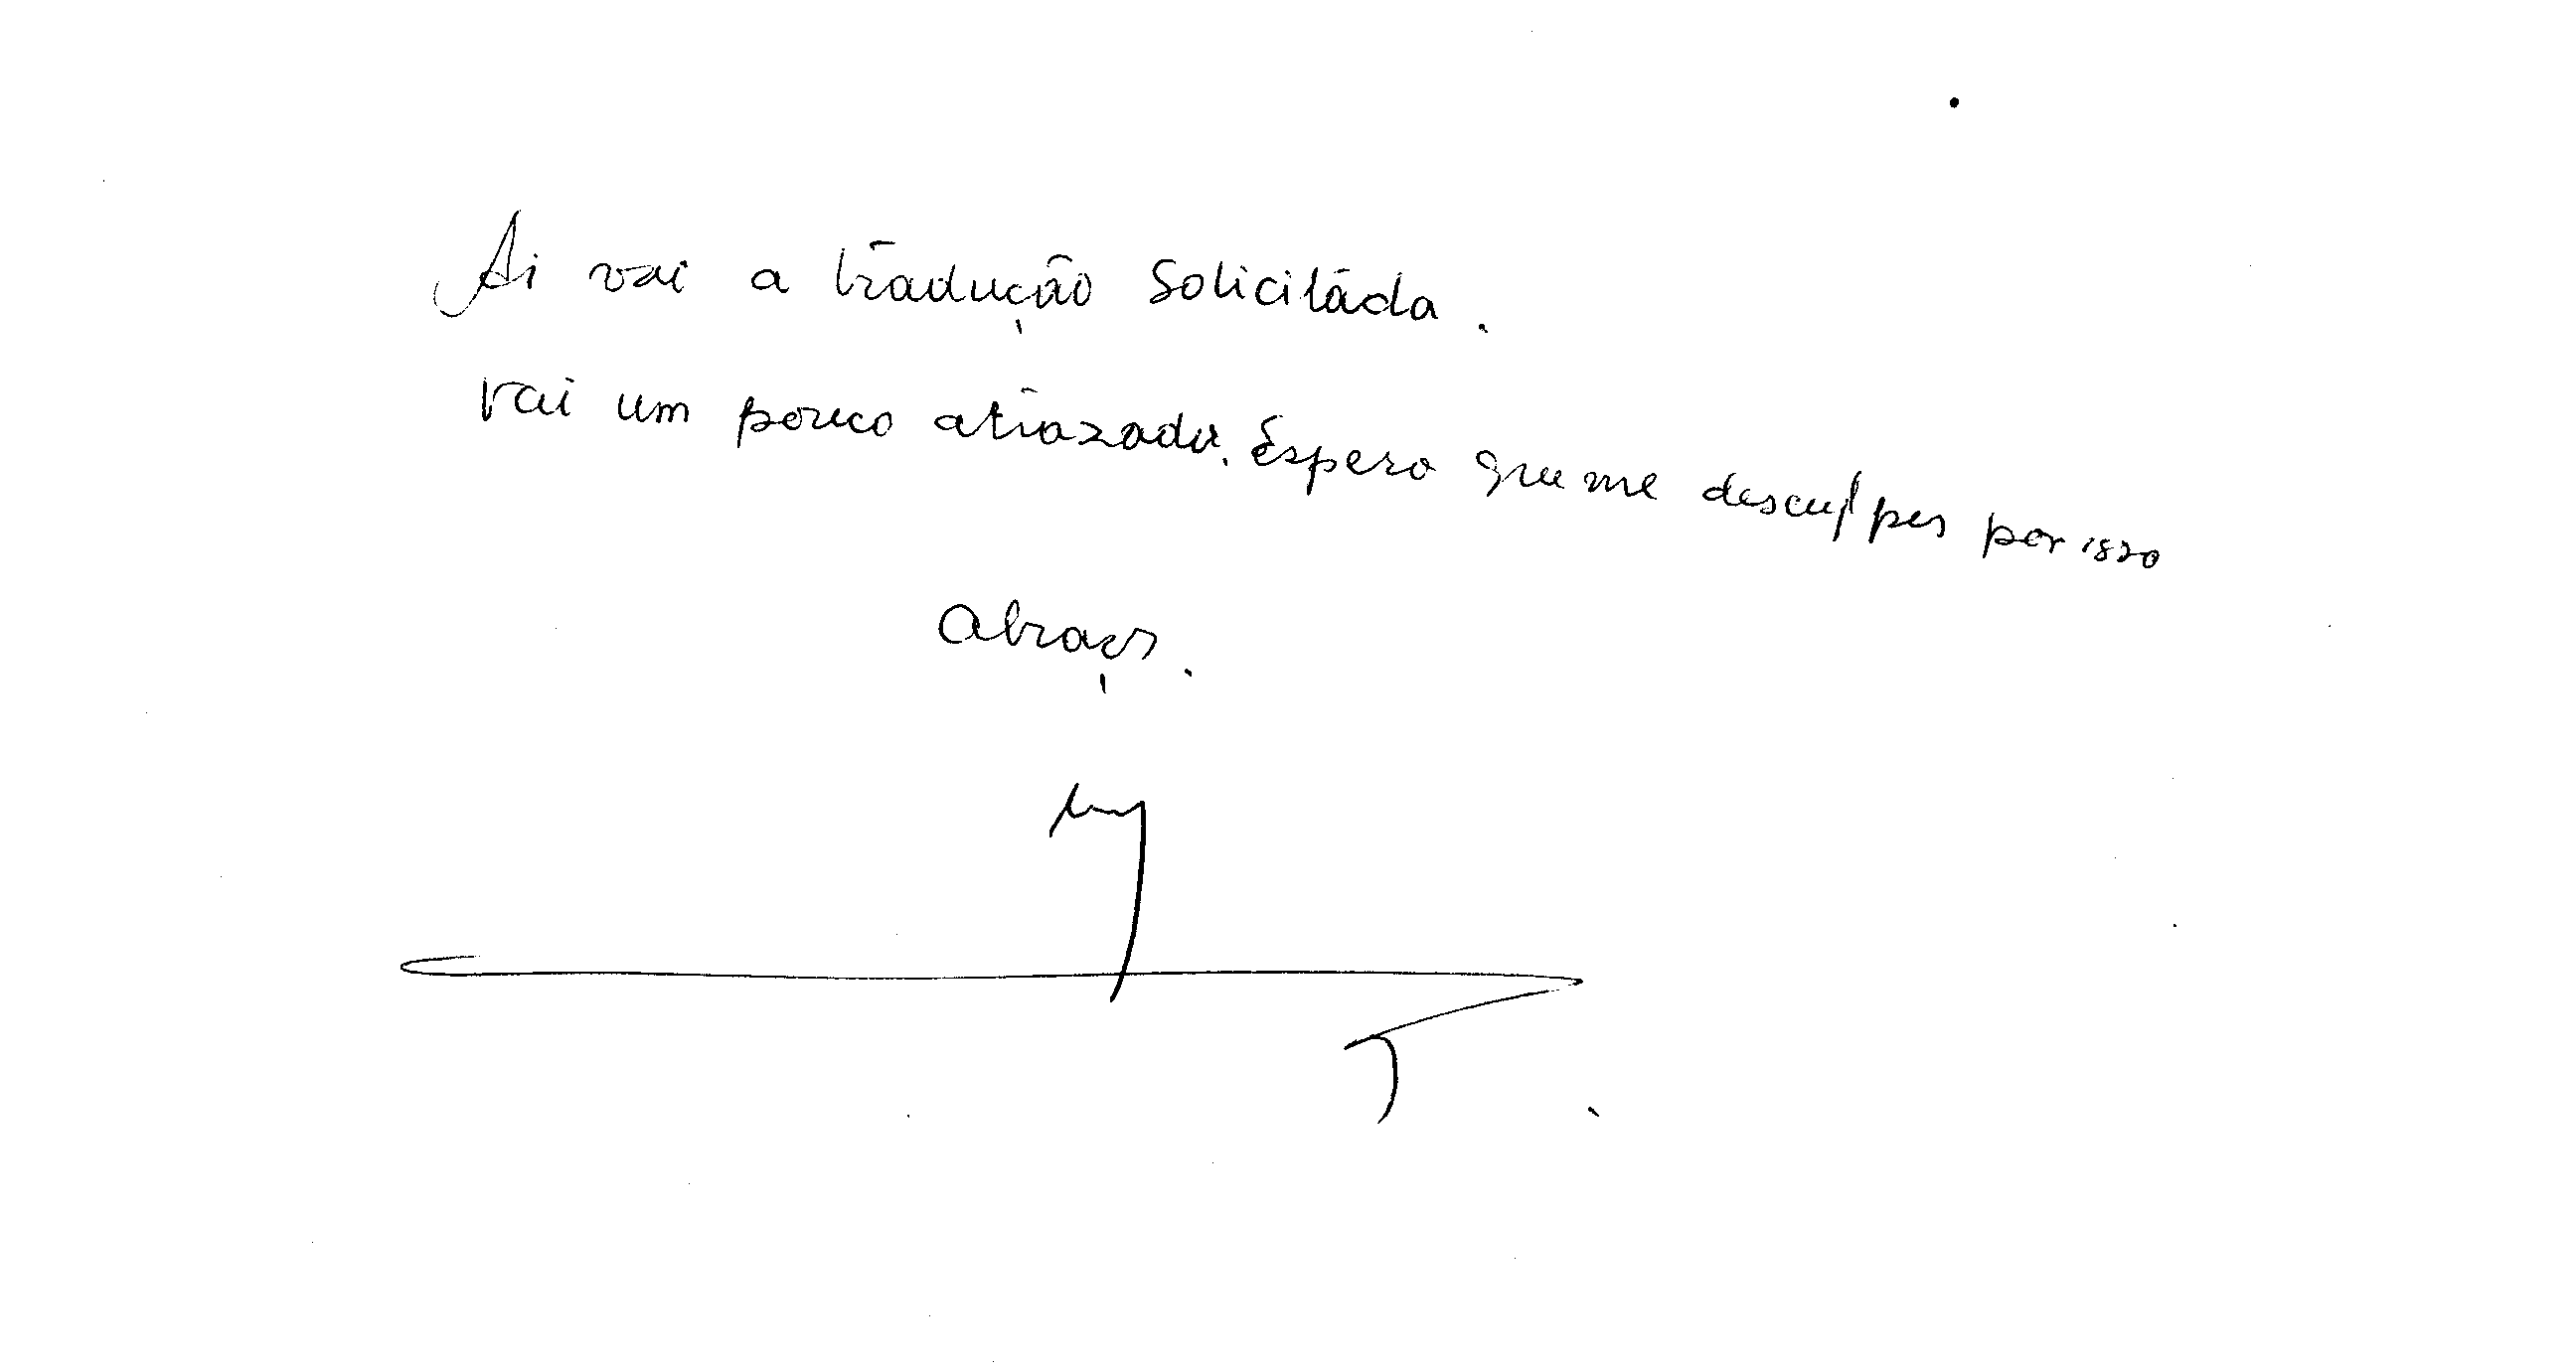 Ai vai a tradução solicitada.
Vai um pouco atrazada. Espero que me desculpes por isso
Abraços.